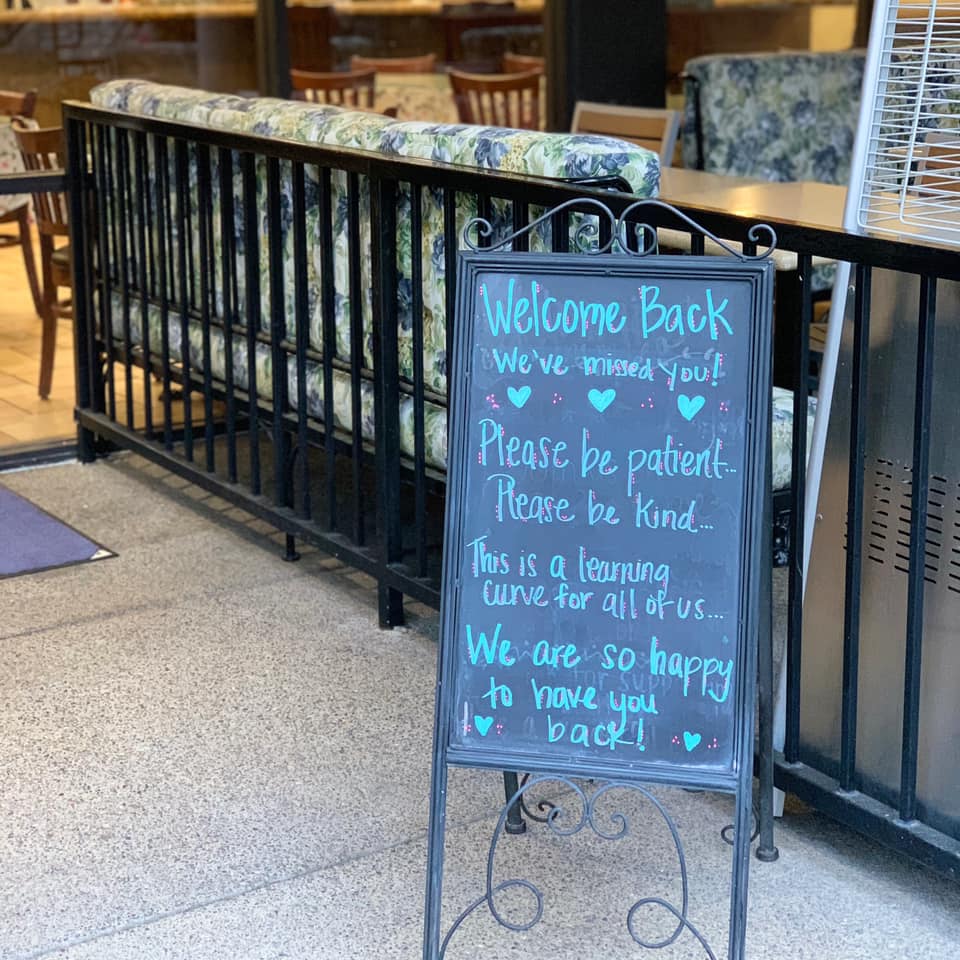 Welcome Back
We've missed you!
Please be patient...
Please be kind...
This is a learning
curve for all of us...
We are so happy
to have you
back!